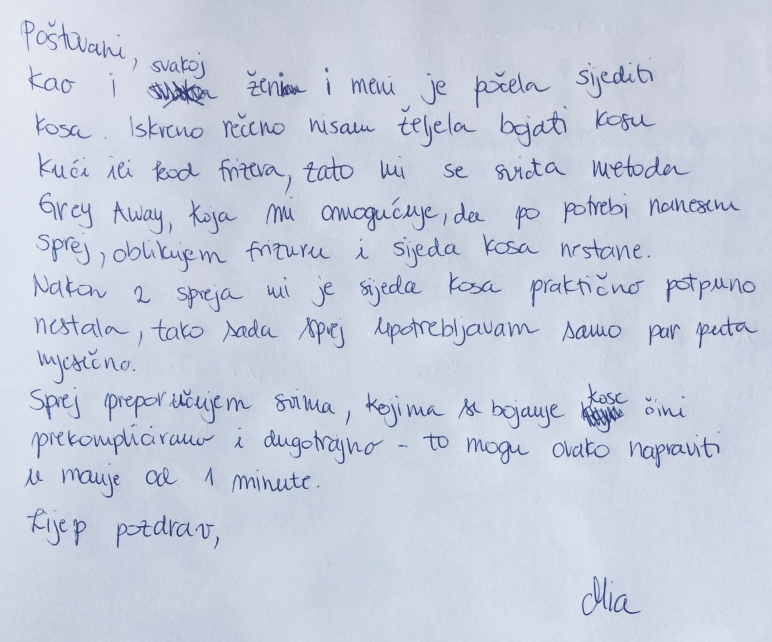 Poštovani,
kao i svakoj ženi i meni je počela sijediti
kosa. Iskreno rečeno nisam željela bojati kosu
kući ili kod frizera, zato mi se sviđa metoda
Grey Away, koja mi omogućuje, da po potrebi nanesem
sprej, oblikujem frizuru i sijeda kosa nestane.
Nakon 2 spreja mi je sijeda kosa praktično potpuno
nestala, tako sada sprej upotrebljavam samo par puta
mjesečno.
Sprej preporučujem svima, kojima se bojanje kose čini
prekomplicirano i dugotrajno - to mogu ovako napraviti
u manje od 1 minute.
Lijep pozdrav,
Mia